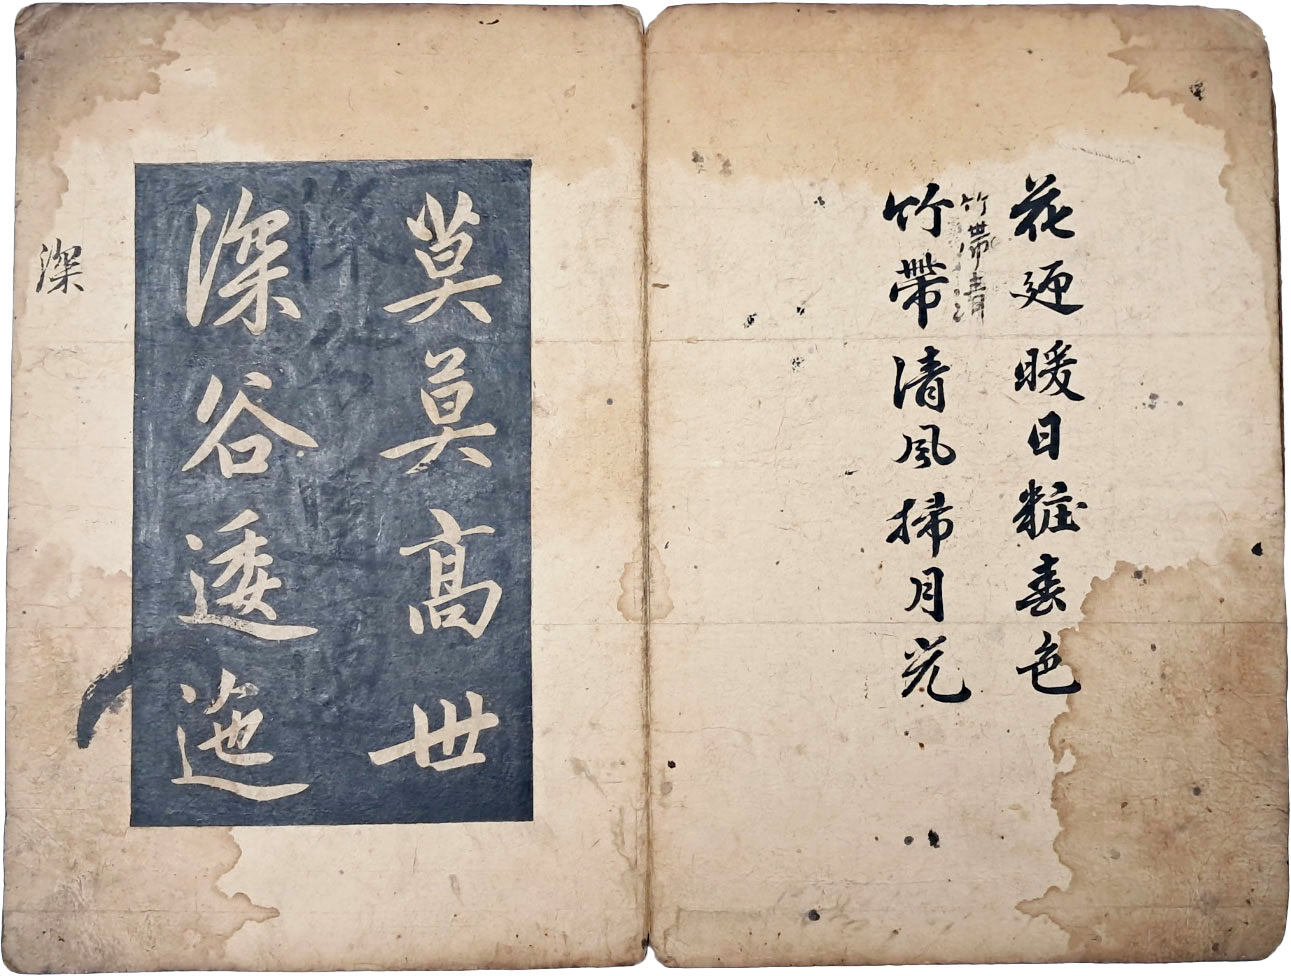 花迎暖日粧春色
竹帶清
竹帶清風掃月光
莫莫高世
深谷逶迤
深